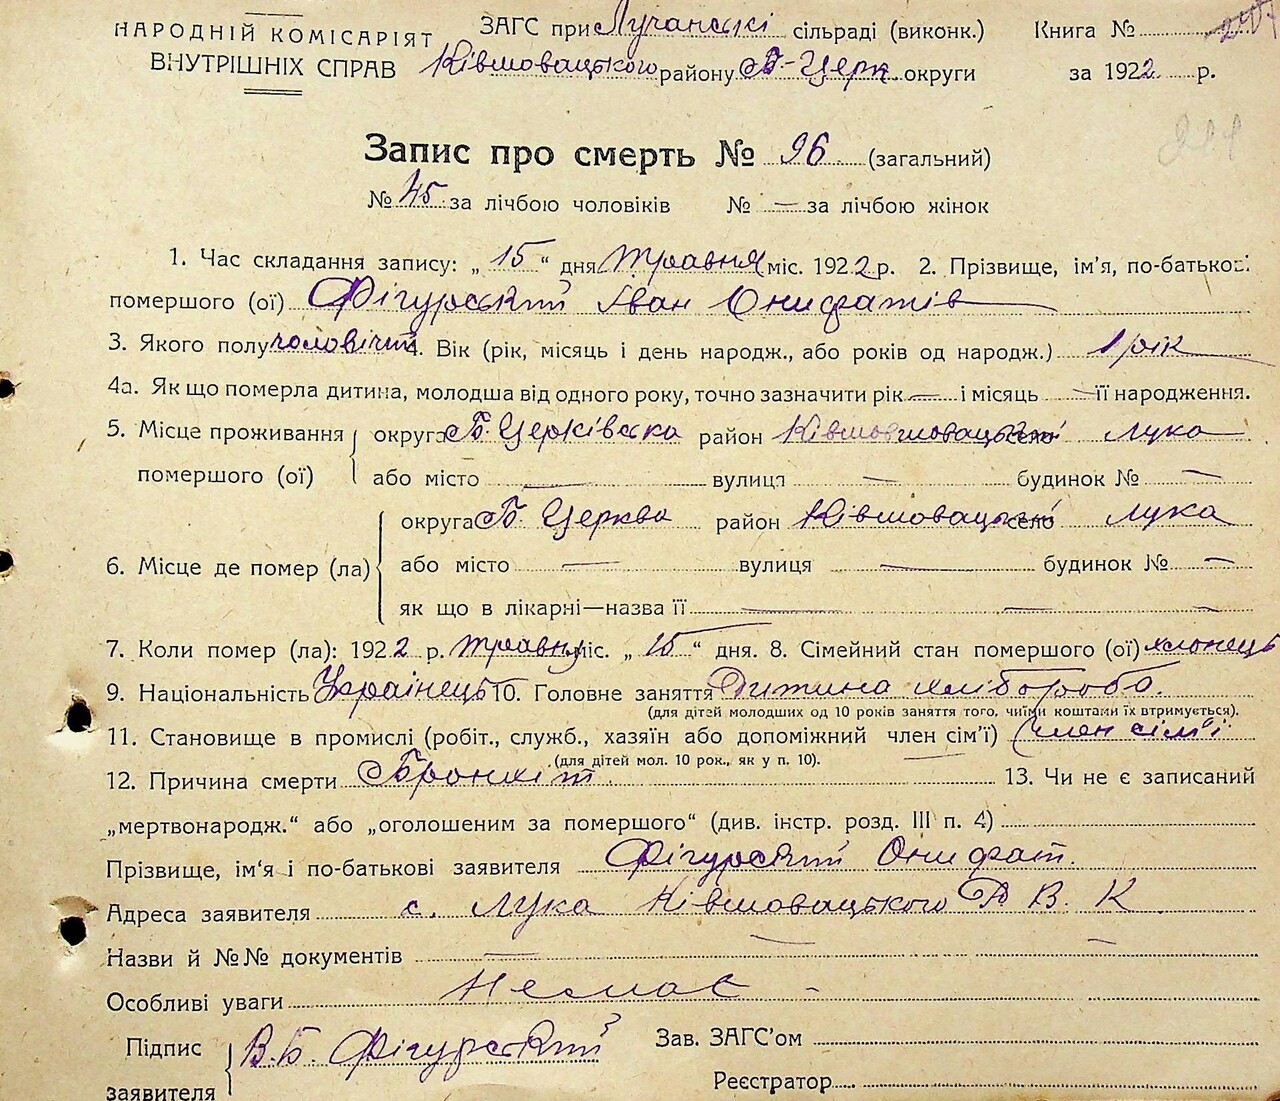 НАРОДНІЙ КОМІСАРІЯТ
ВНУТРІШНІХ СПРАВ
ЗАГС при Лучанські сільраді (виконк.) Книга №
Ківшовацького району Б-Церк. округи за 1922 р.
Запис про смерть № 96 (загальний)
№ 45 за лічбою чоловіків № — за лічбою жінок
1. Час складання запису: „15“ дня травня міс. 1922 р. 2. Прізвище, ім'я, по-батькові
помершого (ої) Фігурський Іван Онифатів
3. Якого полу чоловічий 4. Вік (рік, місяць і день народж., або років од народж.) 1 рік
4а. Як що померла дитина, молодша від одного року, точно зазначити рік — і місяць — її народження.
5. Місце проживання помершого (ої)
округа Б. Церківська район Ківшовацький село Лука
або місто — вулиця — будинок № —
6. Місце де помер (ла)
округа Б. Церква район Ківшовацький село Лука
або місто — вулиця — будинок № —
як що в лікарні—назва її — — —
7. Коли помер (ла): 1922 р. травня міс. „15“ дня. 8. Сімейний стан помершого (ої) хлопець
9. Національність Українець 10. Головне заняття Дитина хлібороба.
(для дітей молодших од 10 років заняття того, чиїми коштами їх втримується).
11. Становище в промислі (робіт., служб., хазяїн або допоміжний член сім'ї) Член сім'ї
(для дітей мол. 10 рок., як у п. 10).
12. Причина смерти Бронхіт. 13. Чи не є записаний
„мертвонародж.“ або „оголошеним за помершого“ (див. інстр. розд. III п. 4)
Прізвище, ім'я і по-батькові заявителя Фігурський Онифат.
Адреса заявителя с. Лука Ківшовацького Р. В. К
Назви й №№ документів — — —
Особливі уваги Немає -
Підпис заявителя В.Б. Фігурський
Зав. ЗАГС'ом
Реєстратор